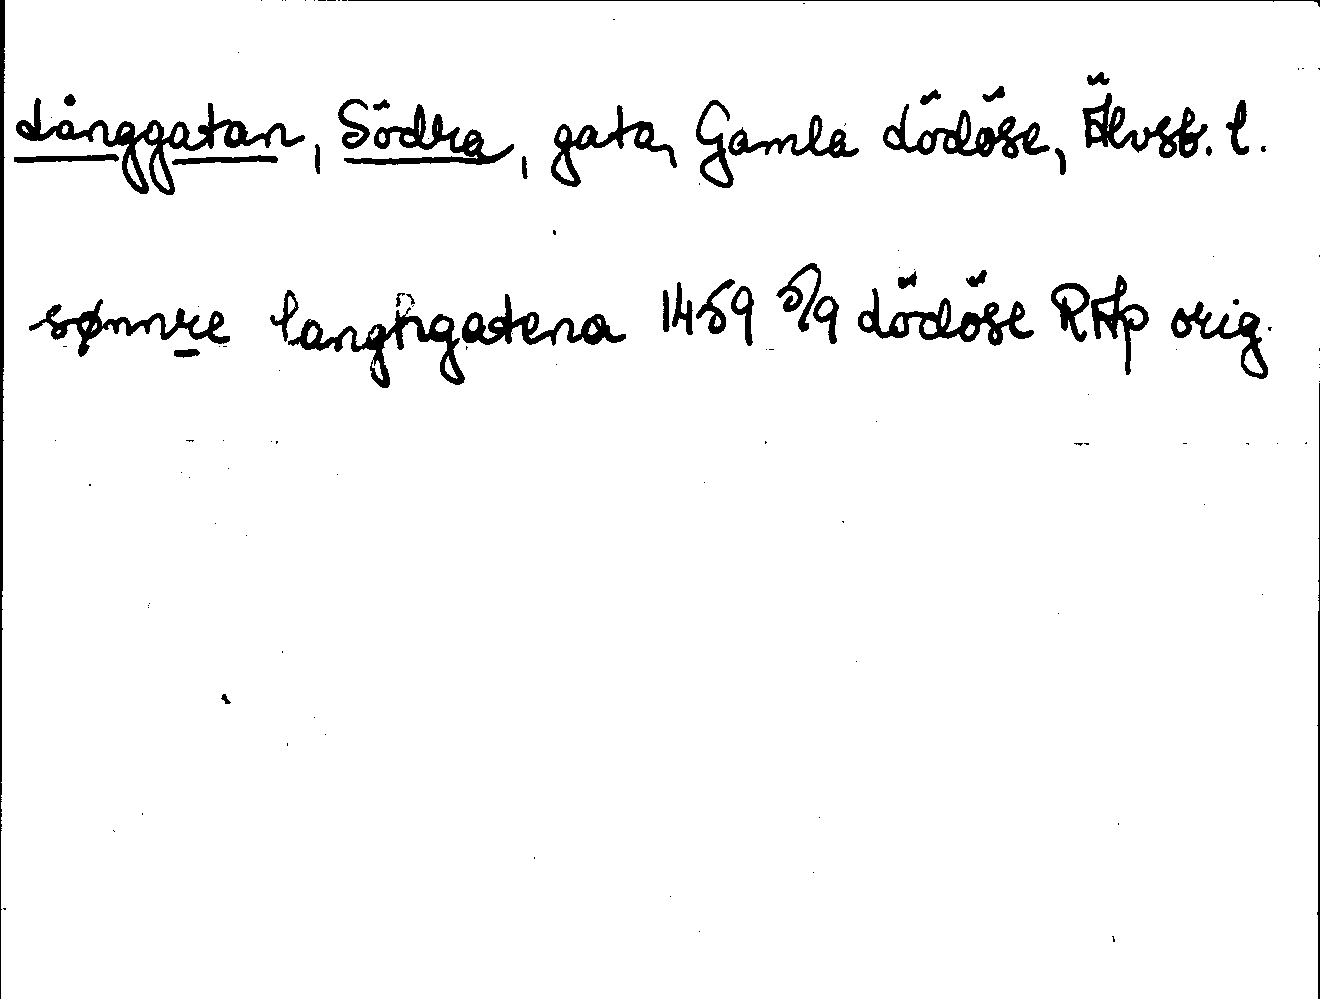 Långgatan, Södra, gata, Gamla Lödöse, Älvsb. l.
sønnre langhgatena 1459 5/9 Lödöse RAp orig.